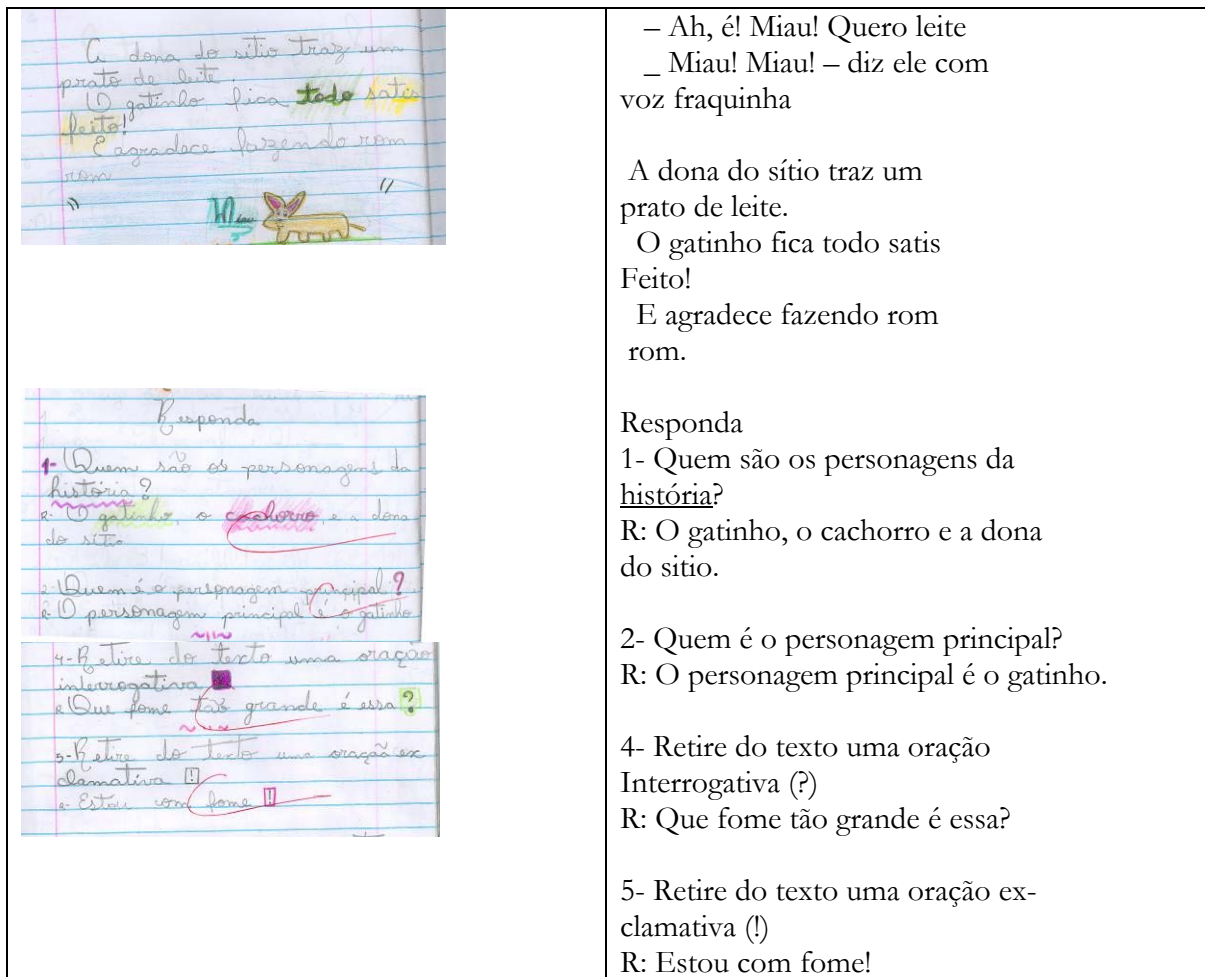 A dona do sítio traz um
prato de leite.
O gatinho fica todo satis
feito!
E agradece fazendo rom
rom
"
"
Miau
Responda
1- Quem são os personagens da
história?
R- O gatinho, o cachorro, e a dona
do sítio
2- Quem é o personagem principal?
R- O personagem principal é o gatinho
4- Retire do texto uma oração
interrogativa
R Que fome tão grande é essa?
5- Retire do texto uma oração ex
clamativa !
R- Estou com fome !
– Ah, é! Miau! Quero leite
_ Miau! Miau! – diz ele com
voz fraquinha
A dona do sítio traz um
prato de leite.
O gatinho fica todo satis
Feito!
E agradece fazendo rom
rom.
Responda
1- Quem são os personagens da
história?
R: O gatinho, o cachorro e a dona
do sitio.
2- Quem é o personagem principal?
R: O personagem principal é o gatinho.
4- Retire do texto uma oração
Interrogativa (?)
R: Que fome tão grande é essa?
5- Retire do texto uma oração ex-
clamativa (!)
R: Estou com fome!